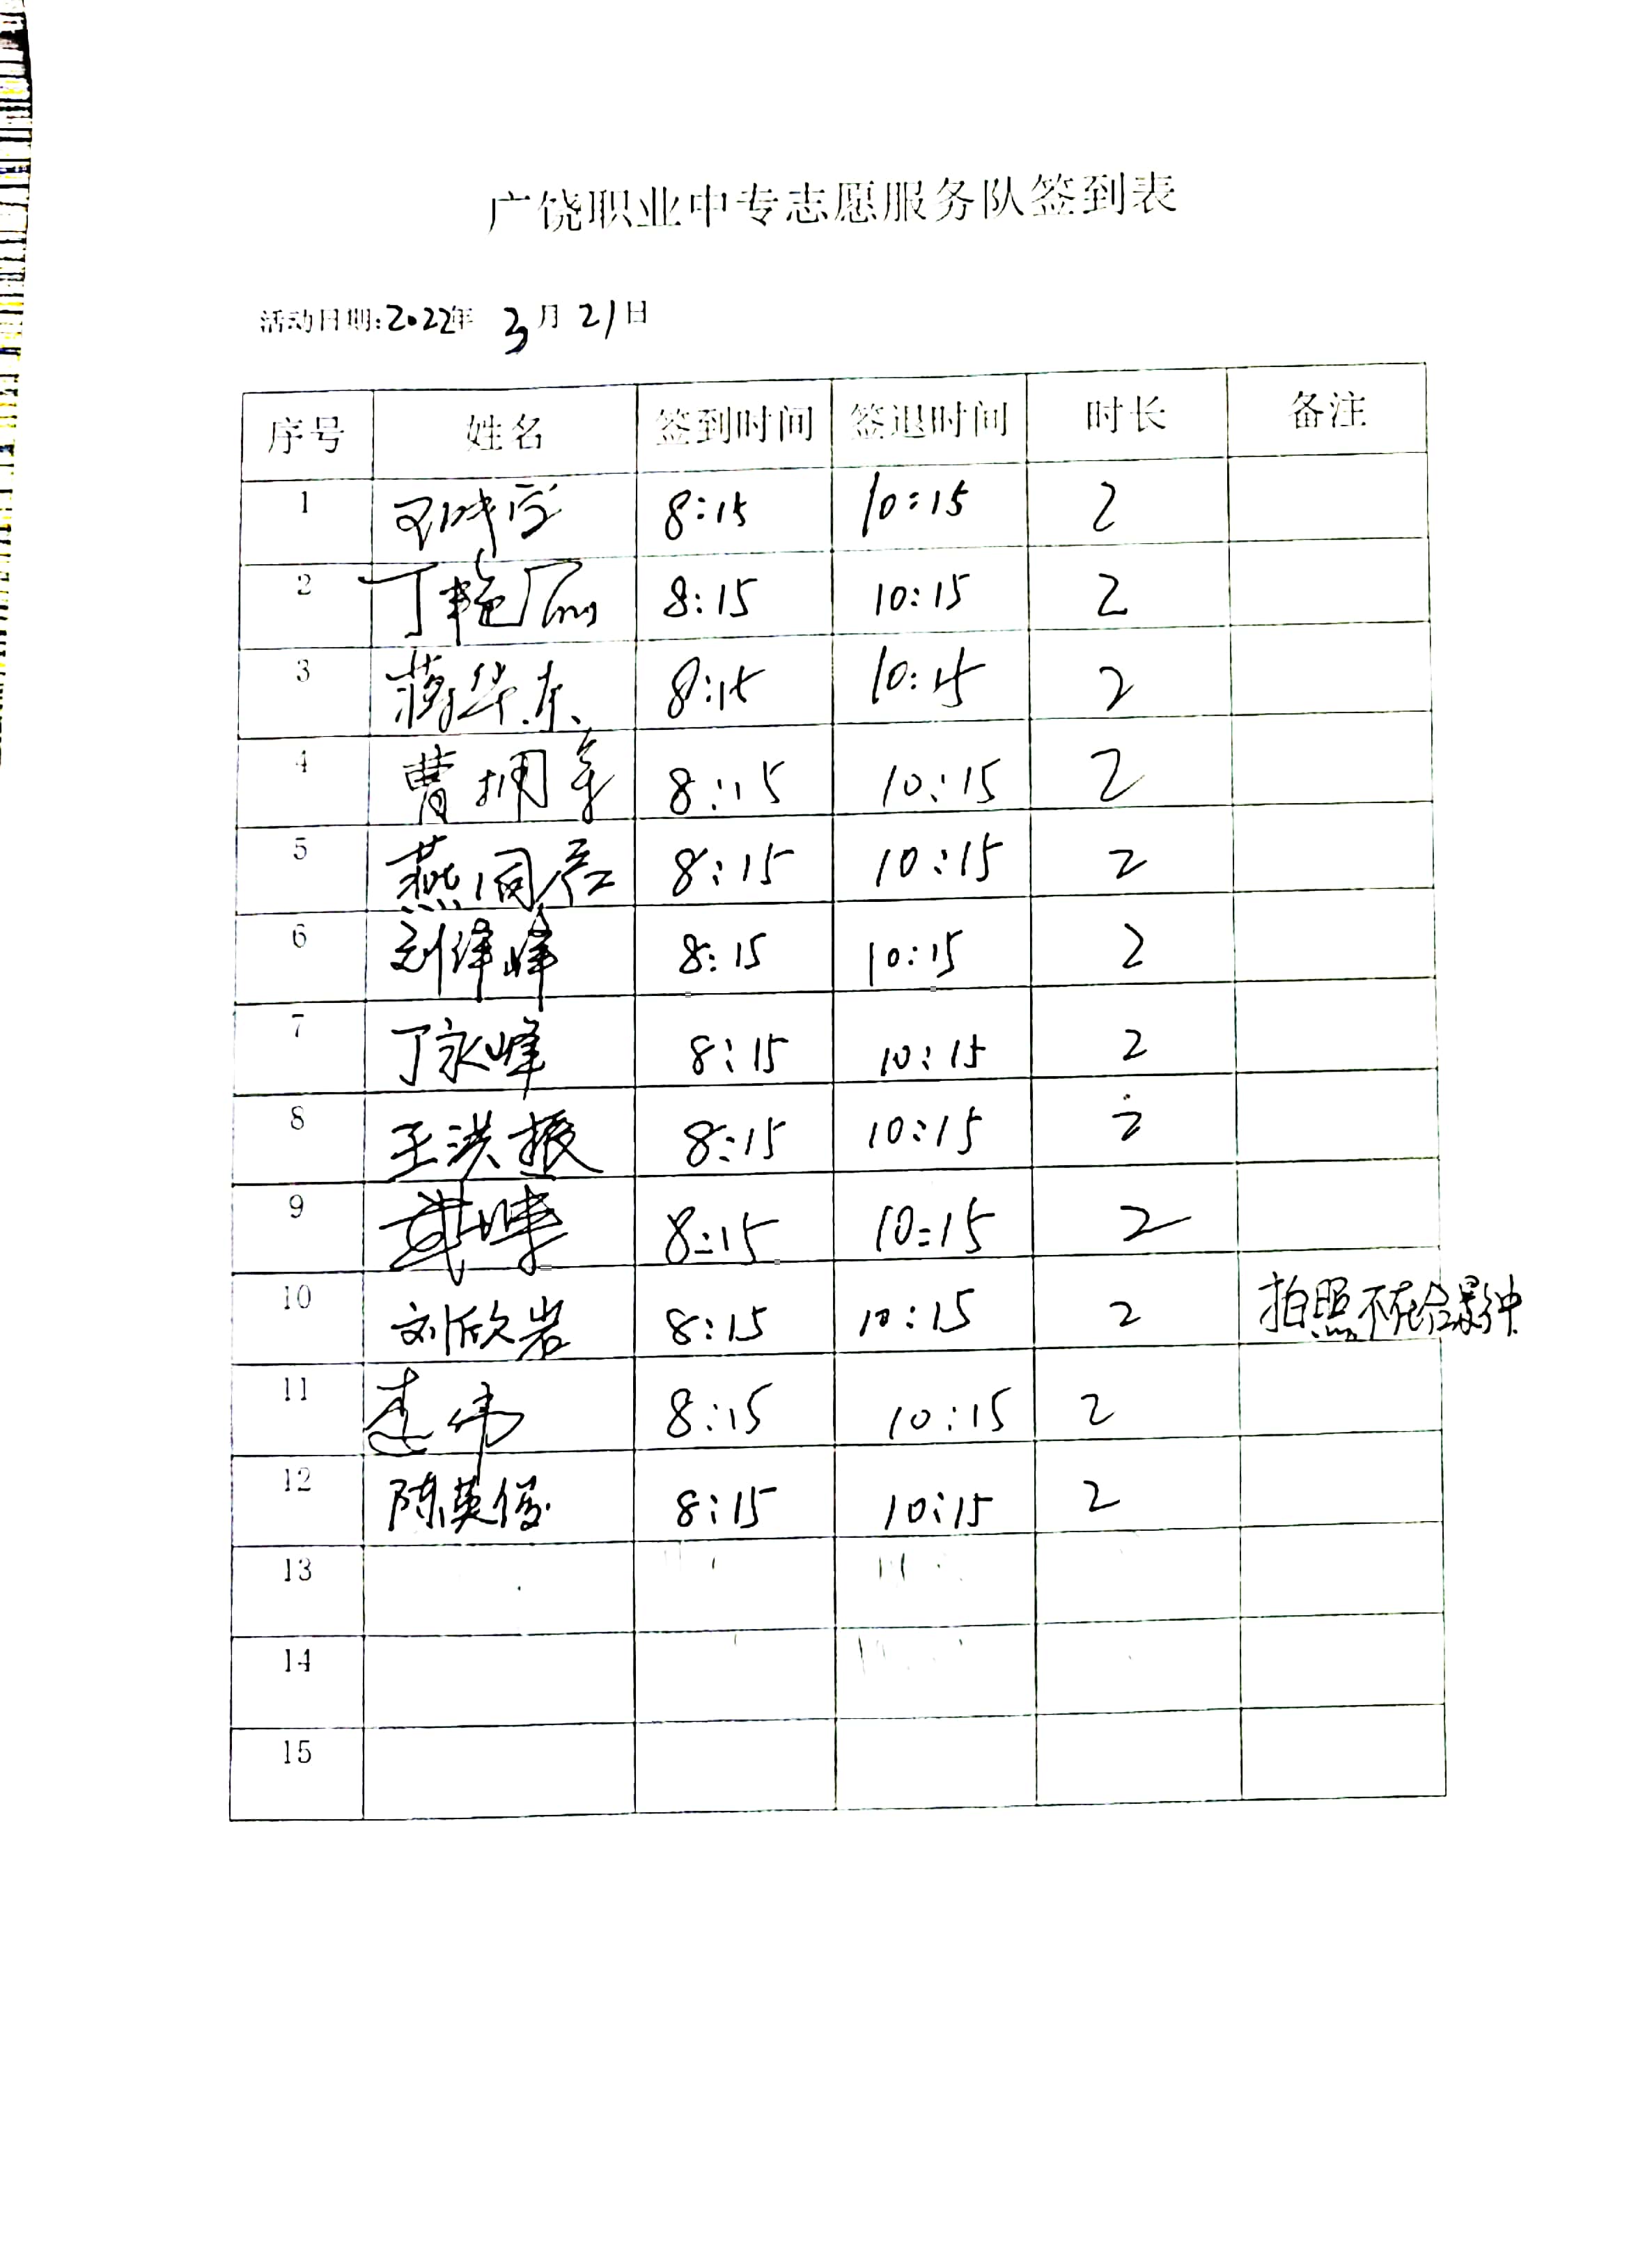 广饶职业中专志愿服务队签到表
活动日期:2022年 3月21日
序号 姓名 签到时间 签退时间 时长 备注
1 8:15 10:15 2
2 丁艳丽 8:15 10:15 2
3 蒋华东 8:15 10:15 2
4 曹拥军 8:15 10:15 2
5 燕同彦 8:15 10:15 2
6 刘伟峰 8:15 10:15 2
7 丁永峰 8:15 10:15 2
8 王洪振 8:15 10:15 2
9 8:15 10:15 2
10 刘欣岩 8:15 10:15 2 拍照不在合影中
11 李伟 8:15 10:15 2
12 陈英俊 8:15 10:15 2
13
14
15